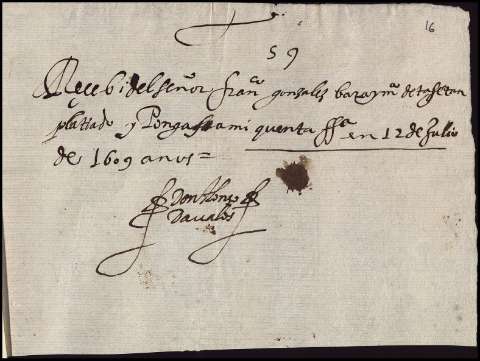 16
59
Reçebi del señor fran^co gonsales bara y m^a de tafetan
plattado y Pongase a mi quenta ff^a en 12 de Julio
de 1609 anos =
Don Alonso
Davalos